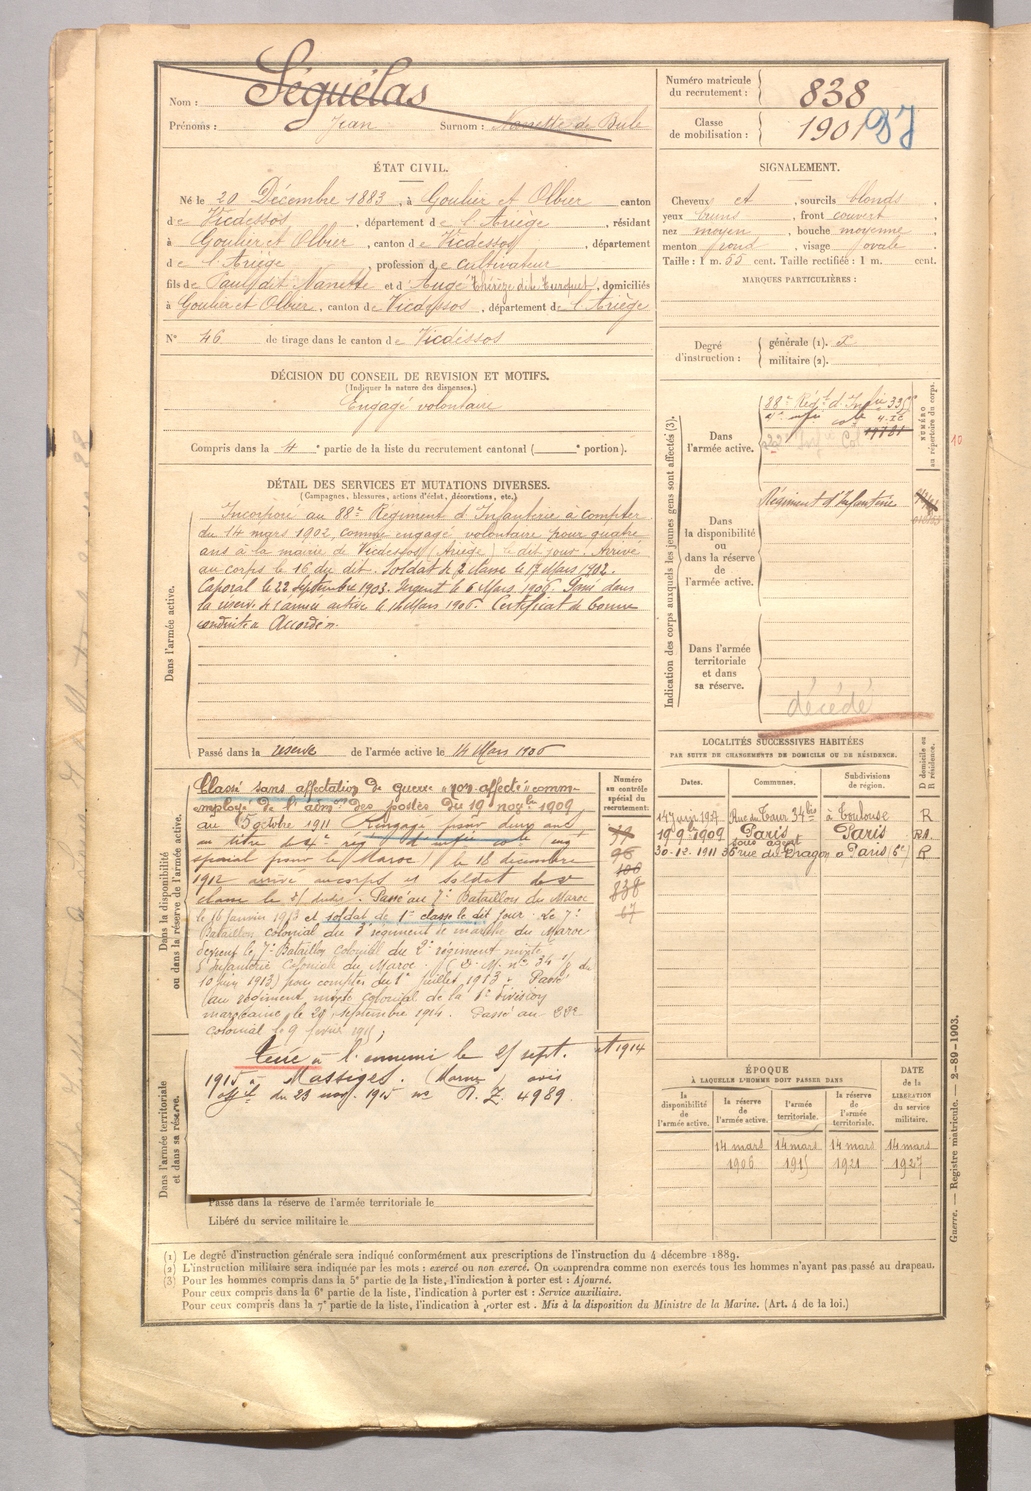 Nom : Séguélas
Prénoms : Jean Surnom : Nanette de Bule
Numéro matricule du recrutement : 838
Classe de mobilisation : 1901
ÉTAT CIVIL.
Né le 20 Décembre 1883, à Goulier et Olbier canton
de Vicdessos, département de l'Ariège, résidant
à Goulier et Olbier, canton de Vicdessos, département
de l'Ariège, profession de cultivateur
fils de Paul dit Nanette et d'Augé Thérèze dite Turquet, domiciliés
à Goulier et Olbier, canton de Vicdessos, département de l'Ariège
N° 46 de tirage dans le canton de Vicdessos
SIGNALEMENT.
Cheveux et, sourcils blonds,
yeux bruns, front couvert,
nez moyen, bouche moyenne,
menton rond, visage ovale.
Taille : 1 m. 55 cent. Taille rectifiée : 1 m. cent.
MARQUES PARTICULIÈRES :
Degré d'instruction : générale (1). militaire (2).
DÉCISION DU CONSEIL DE REVISION ET MOTIFS.
(Indiquer la nature des dispenses.)
Engagé volontaire
Compris dans la 4e partie de la liste du recrutement cantonal ( e portion).
DÉTAIL DES SERVICES ET MUTATIONS DIVERSES.
(Campagnes, blessures, actions d'éclat, décorations, etc.)
Dans l'armée active.
Incorporé au 88e Régiment d'Infanterie à compter
du 14 mars 1902, comme engagé volontaire pour quatre
ans à la mairie de Vicdessos (Ariège) le dit jour. Arrivé
au corps le 16 du dit. Soldat de 2 classe le 17 Mars 1902.
Caporal le 22 septembre 1903. Sergent le 6 Mars 1906. Passé dans
la réserve de l'armée active le 14 Mars 1906. Certificat de bonne
conduite Accordé.
Passé dans la réserve de l'armée active le 14 Mars 1906
Indication des corps auxquels les jeunes gens sont affectés (3).
NUMÉRO au répertoire du corps.
Dans l'armée active.
88e Régt d'Infie
Dans la disponibilité ou dans la réserve de l'armée active.
Régiment d'Infanterie
Dans l'armée territoriale et dans sa réserve.
décédé
10
Dans la disponibilité ou dans la réserve de l'armée active.
Classé sans affectation de guerre "non affecté" comme
employé de l'admon des postes du 19 novbre 1909
au 5 octobre 1911 Rengagé pour deux ans
au titre du 4e rég d'infie cole (
spécial pour le Maroc) le 18 décembre
1912 arrivé au corps et soldat de 2e
classe le dudit. Passé au 7e Bataillon du Maroc
le 16 janvier 1913 et soldat de 1e classe le dit jour. Le 7e
Bataillon colonial du 3e régiment de marche du Maroc
devient le 7e Bataillon Colonial du 2e régiment mixte
d'Infanterie Coloniale du Maroc. (D. M. n° 34 du
10 juin 1913) pour compter du 1er juillet 1913. Passé
au régiment mixte colonial de la 1e division
marocaine le 29 septembre 1914. Passé au 22e
colonial le 9 février 1915;
tué à l'ennemi le 25 sept.
1915 à Massiges. (Marne) avis
offel du 23 nov. 1915 n° R. Z. 4989.
Numéro au contrôle spécial du recrutement :
96
100
838
67
1914
LOCALITÉS SUCCESSIVES HABITÉES
PAR SUITE DE CHANGEMENTS DE DOMICILE OU DE RÉSIDENCE.
Dates. Communes. Subdivisions de région. D domicile ou R résidence.
Rue du Taur 34bis à Toulouse R
19 9 1909 Paris Paris
sous agent
30-12-1911 36 rue du Dragon à Paris (6e) R
ÉPOQUE
À LAQUELLE L'HOMME DOIT PASSER DANS
la disponibilité de l'armée active.
la réserve de l'armée active.
l'armée territoriale.
la réserve de l'armée territoriale.
DATE de la LIBÉRATION du service militaire.
14 mars 14 mars 14 mars 14 mars
1906 1915 1921 1927
Dans l'armée territoriale et dans sa réserve.
Passé dans la réserve de l'armée territoriale le
Libéré du service militaire le
Guerre. — Registre matricule. — 2-89-1903.
(1) Le degré d'instruction générale sera indiqué conformément aux prescriptions de l'instruction du 4 décembre 1889.
(2) L'instruction militaire sera indiquée par les mots : exercé ou non exercé. On comprendra comme non exercés tous les hommes n'ayant pas passé au drapeau.
(3) Pour les hommes compris dans la 5e partie de la liste, l'indication à porter est : Ajourné.
Pour ceux compris dans la 6e partie de la liste, l'indication à porter est : Service auxiliaire.
Pour ceux compris dans la 7e partie de la liste, l'indication à porter est. Mis à la disposition du Ministre de la Marine. (Art. 4 de la loi.)